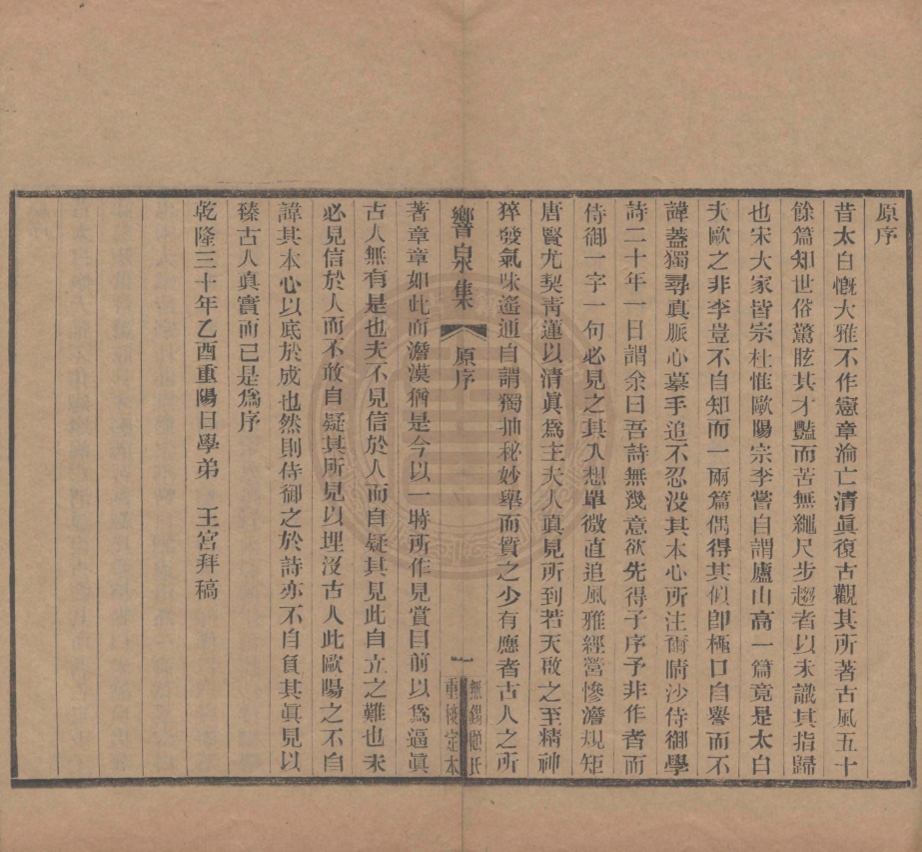 原序
昔太白慨大雅不作憲章淪亡清眞復古觀其所著古風五十
餘篇知世俗驚眩其才豔而苦無繩尺步趨者以未識其指歸
也宋大家皆宗杜惟歐陽宗李嘗自謂廬山高一篇竟是太白
夫歐之非李豈不自知而一兩篇偶得其似卽極口自譽而不
諱蓋獨尋眞脈心摹手追不忍没其本心所注爾晴沙侍御學
詩二十年一日謂余曰吾詩無幾意欲先得子序予非作者而
侍御一字一句必見之其入想單微直追風雅經營慘澹規矩
唐賢尤契靑蓮以清眞爲主夫人眞見所到若天啟之至精神
猝發氣味遙通自謂獨抽秘妙舉而質之少有應者古人之所
響泉集
原序
一
無錫顧氏
重校定本
著章章如此而澹漠猶是今以一時所作見賞目前以爲逼眞
古人無有是也夫不見信於人而自疑其見此自立之難也未
必見信於人而不敢自疑其所見以埋沒古人此歐陽之不自
諱其本心以底於成也然則侍御之於詩亦不自負其眞見以
臻古人眞實而已是爲序
乾隆三十年乙酉重陽日學弟　王宮拜稿